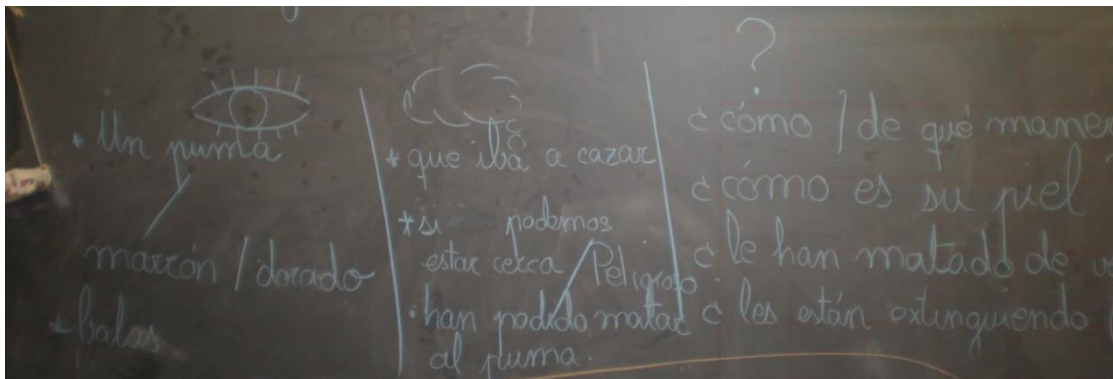 * Un puma
marrón / dorado
* balas
* que iba a cazar
* si podemos
estar cerca / Peligroso
· han podido matar
al puma.
?
¿cómo / de qué
¿cómo es su piel
¿le han matado de
¿les están extinguiendo